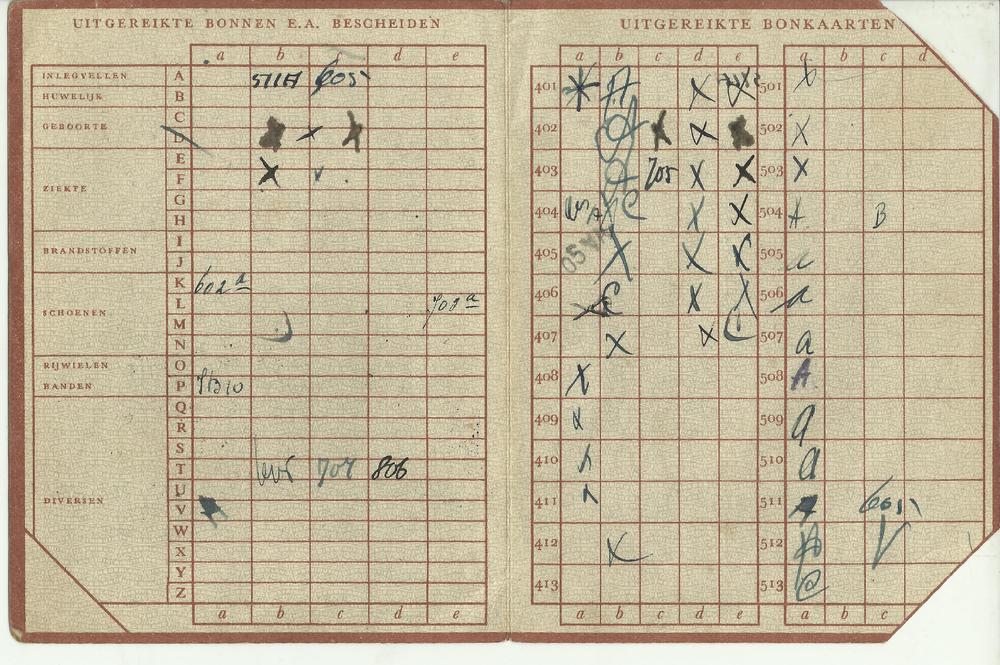 UITGEREIKTE BONNEN E.A. BESCHEIDEN
a b c d e
INLEGVELLEN A 511A 605
HUWELIJK B
C
GEBOORTE
D x
E
F x v
ZIEKTE
G
H
I
BRANDSTOFFEN
J
K 602a
L 703a
SCHOENEN
M
N
RIJWIELEN O
BANDEN P
Q
R
S
T 707 806
U
DIVERSEN
V
W
X
Y
Z
a b c d e
UITGEREIKTE BONKAARTEN
a b c d e a b c d
401 A X X 501 X
402 X 502 X
403 705 X X 503 X
404 X X 504 A. B
405 X X X 505 a
406 X X 506 a
407 X X 507 a
408 X 508 A.
409 X 509 a
410 510 a
411 511
412 X 512 A V
413 513 @
a b c d e a b c